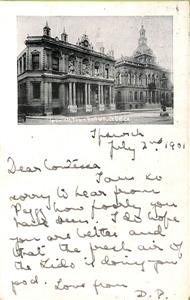 Ipswich
July 2nd 1901
Dear Contessa
I am so
sorry to hear from
how poorly you
have been. I do hope
you are better and
that the fresh air of
the Lido is doing you
good. Love from
D.P.